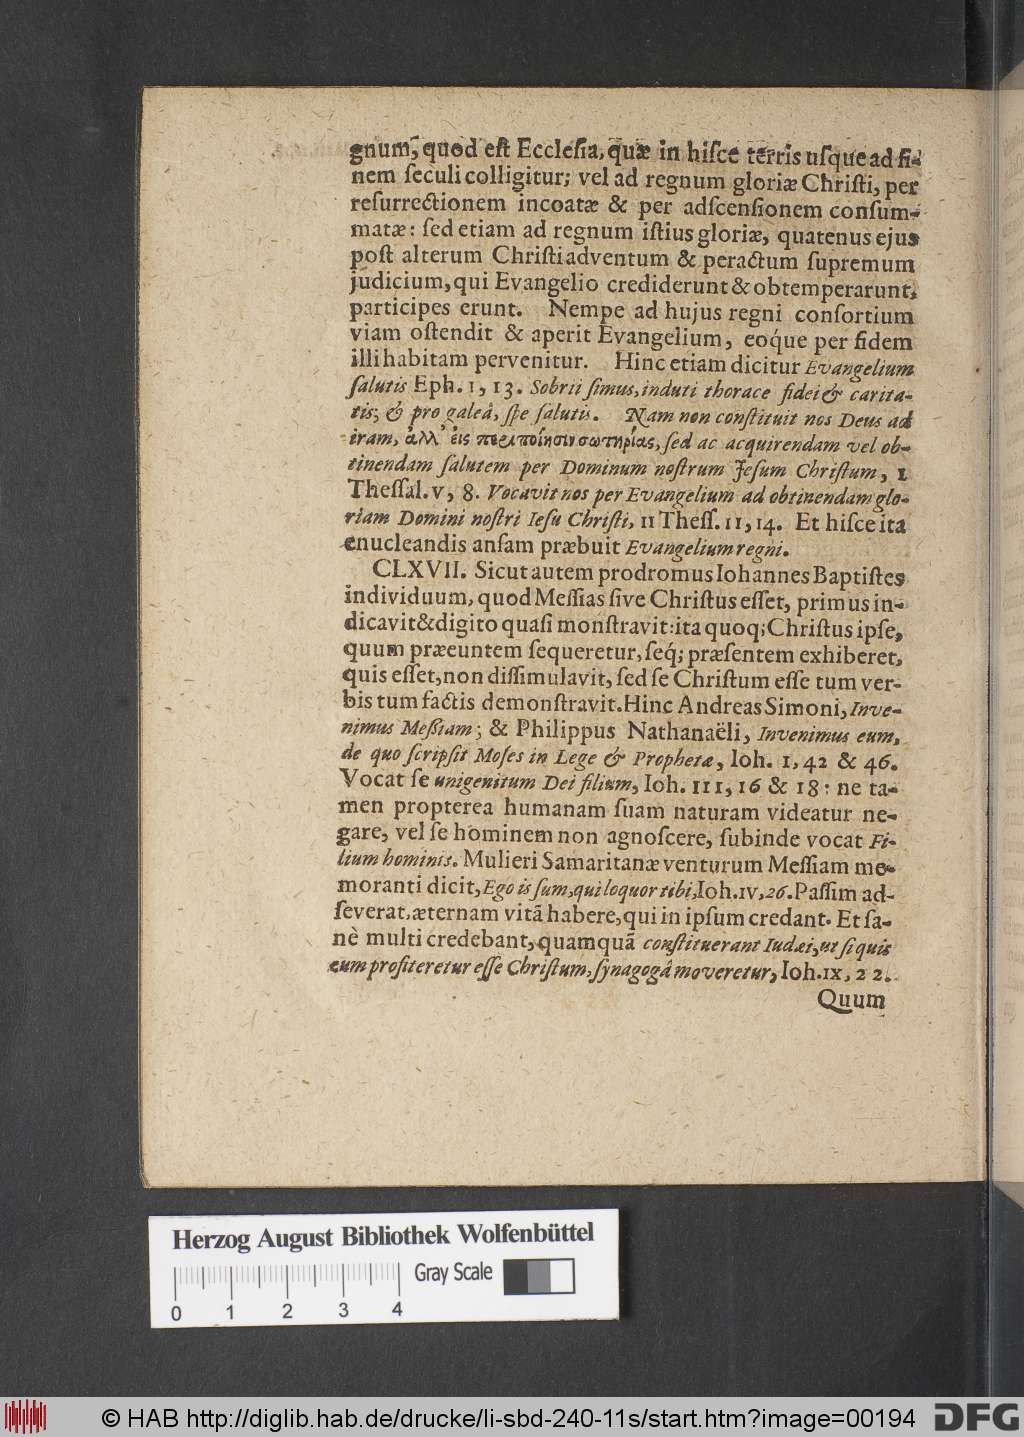 gnum, quod eſt Eccleſia, quæ in hiſce terris uſque ad fi-
nem ſeculi colligitur; vel ad regnum gloriæ Chriſti, per
reſurrectionem incoatæ & per adſcenſionem conſum-
matæ: ſed etiam ad regnum iſtius gloriæ, quatenus ejus
poſt alterum Chriſti adventum & peractum ſupremum
judicium, qui Evangelio crediderunt & obtemperarunt,
participes erunt. Nempe ad hujus regni conſortium
viam oſtendit & aperit Evangelium, eóque per fidem
illi habitam pervenitur. Hinc etiam dicitur Evangelium
ſalutis Eph. 1, 13. Sobrii ſimus, induti thorace fidei & carita-
tis; & pro galeâ, ſpe ſalutis. Nam non conſtituit nos Deus ad
iram, ἀλλ' εἰς περιποίησιν σωτηρίας, ſed ac acquirendam vel ob-
tinendam ſalutem per Dominum noſtrum Jeſum Chriſtum, 1
Theſſal. v, 8. Vocavit nos per Evangelium ad obtinendam glo-
riam Domini noſtri Ieſu Chriſti, 11 Theſſ. 11, 14. Et hiſce ita
enucleandis anſam præbuit Evangelium regni.
CLXVII. Sicut autem prodromus Iohannes Baptiſtes
individuum, quod Meſſias ſive Chriſtus eſſet, primus in-
dicavit & digito quaſi monſtravit: ita quoq; Chriſtus ipſe,
quum præeuntem ſequeretur, ſeq́; præſentem exhiberet,
quis eſſet, non diſſimulavit, ſed ſe Chriſtum eſſe tum ver-
bis tum factis demonſtravit. Hinc Andreas Simoni, Inve-
nimus Meßiam; & Philippus Nathanaëli, Invenimus eum,
de quo ſcripſit Moſes in Lege & Prophetæ, Ioh. 1, 42 & 46.
Vocat ſe unigenitum Dei filium, Ioh. 111, 16 & 18: ne ta-
men propterea humanam ſuam naturam videatur ne-
gare, vel ſe hominem non agnoſcere, ſubinde vocat Fi-
lium hominis. Mulieri Samaritanæ venturum Meſſiam me-
moranti dicit, Ego is ſum, qui loquor tibi, Ioh. iv, 26. Paſſim ad-
ſeverat, æternam vitā habere, qui in ipſum credant. Et ſa-
nè multi credebant, quamquā conſtituerant Iudæi, ut ſi quis
eum profiteretur eſſe Chriſtum, ſynagogâ moveretur, Ioh. ix, 22.
Quum
Herzog August Bibliothek Wolfenbüttel
Gray Scale
0 1 2 3 4
© HAB http://diglib.hab.de/drucke/li-sbd-240-11s/start.htm?image=00194
DFG